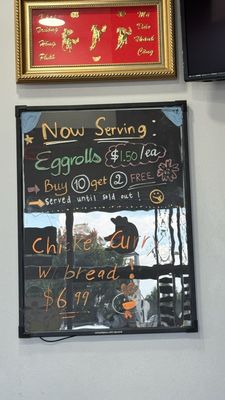 Trường
Hồng
Phát
Mã
Đáo
Thành
Công
Now Serving:
Eggrolls $1.50/ea
Buy 10 get 2 FREE
Served until sold out!
Chicken Curry
w bread!
$6.99